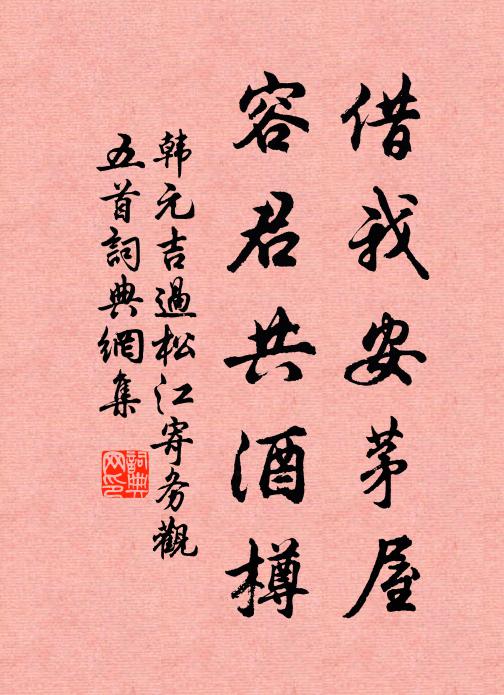 借我安茅屋
容君共酒樽
韩元吉過松江寄务觀
五首詞典網集
詞典網印